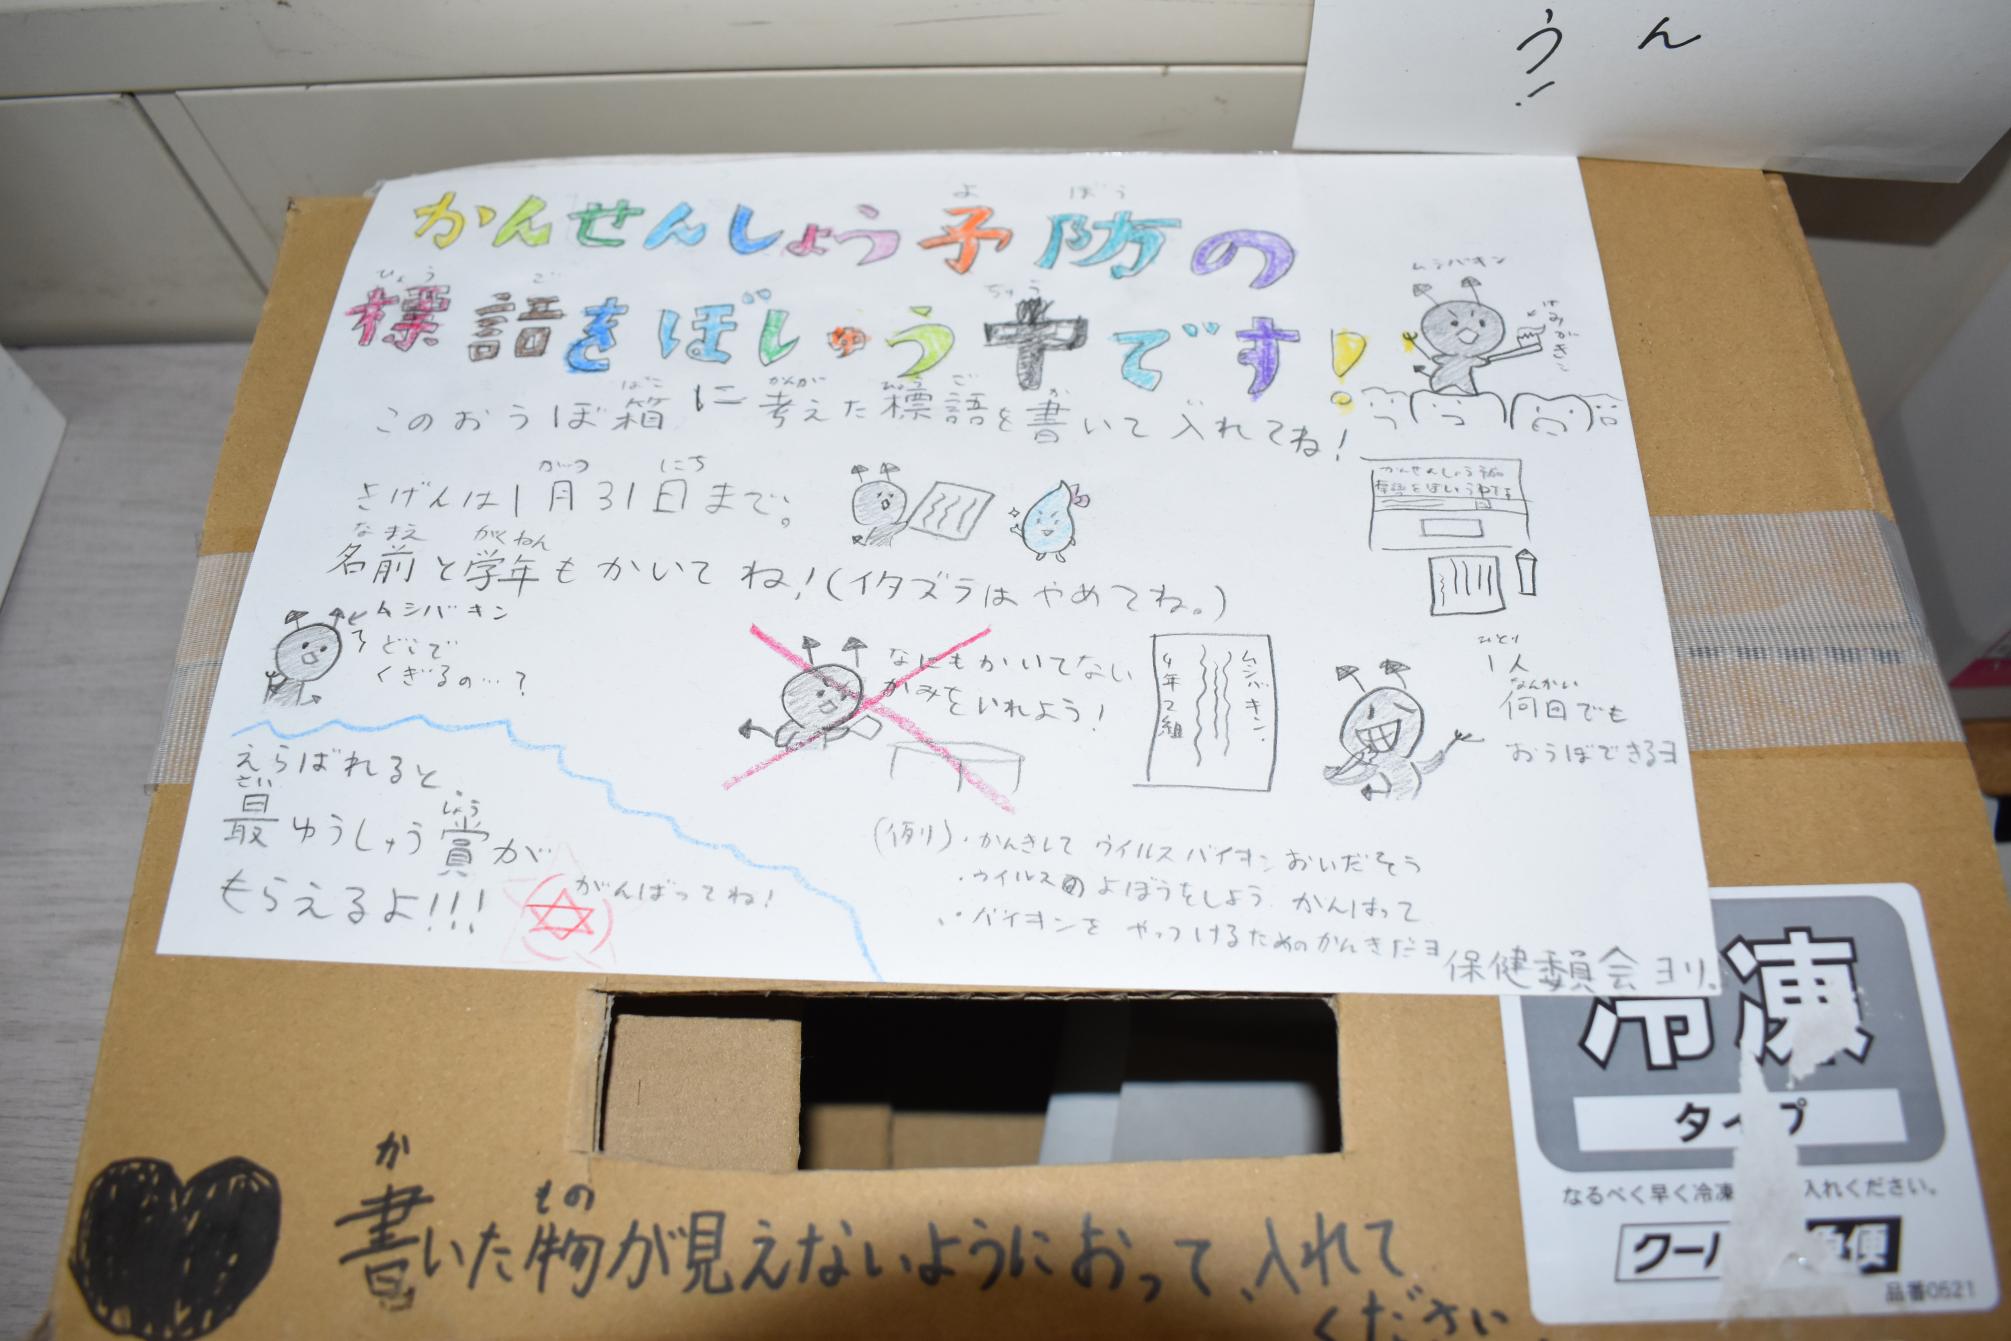 うん!
かんせんしょう予防の
よぼう
標語をぼしゅう中です!
ひょうご
ちゅう
ムシバキン
はみがきこ
このおうぼ箱に考えた標語を書いて入れてね!
ばこ
かんが
ひょうご
か
きげんは1月31日まで。
がつ
にち
かんせんしょう予防の
標語をぼしゅう中です
名前と学年もかいてね!(イタズラはやめてね。)
なまえ
がくねん
ムシバキン
どこで
くぎるの…?
なにもかいてない
かみをいれよう!
ムシバキン
4年2組
1人
ひとり
何回でも
なんかい
おうぼできるヨ
えらばれると、
最ゆうしゅう賞が
さい
しょう
もらえるよ!!!
がんばってね!
(例)・かんきして ウイルスバイキン おいだそう
・ウイルスの よぼうをしよう がんばって
・バイキンを やっつけるためのかんきだヨ
保健委員会ヨリ
冷凍
タイプ
なるべく早く冷凍 入れください。
クー 急便
品番0521
書いた物が見えないようにおって、入れて
か
もの
ください